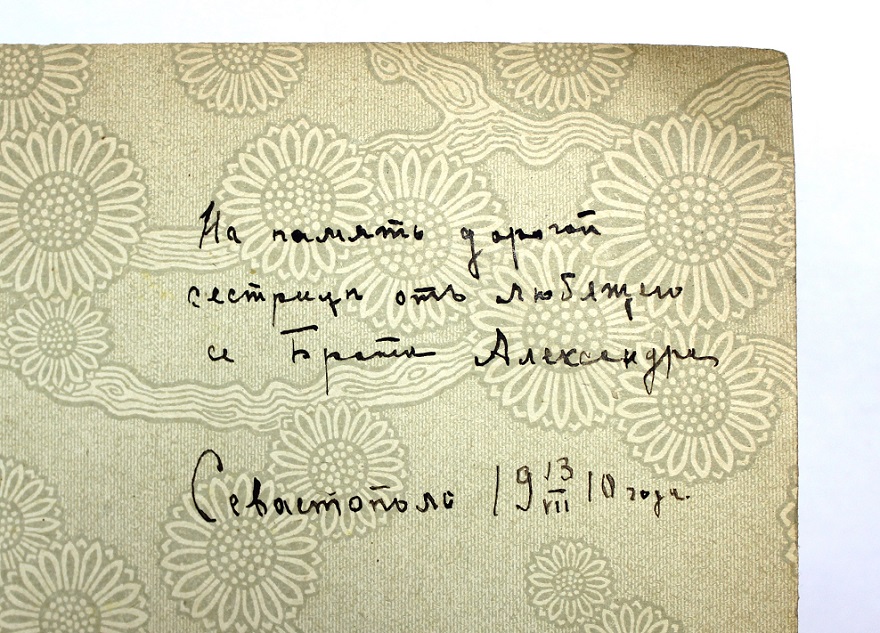 На память дорогой
сестрицѣ отъ любящаго
ее Брата Александра
Севастополь 19 13/VII 10 года.